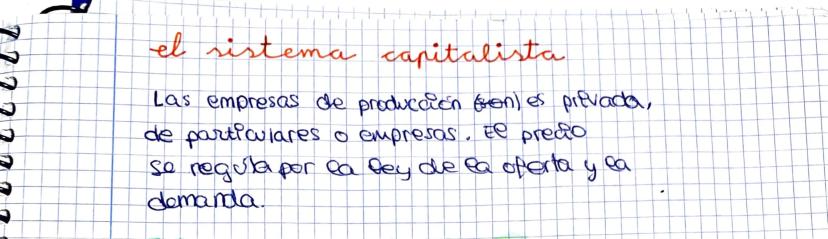 el sistema capitalista
Las empresas de producción (son) es privada,
de particulares o empresas. El precio
se regula por la ley de la oferta y la
demanda.